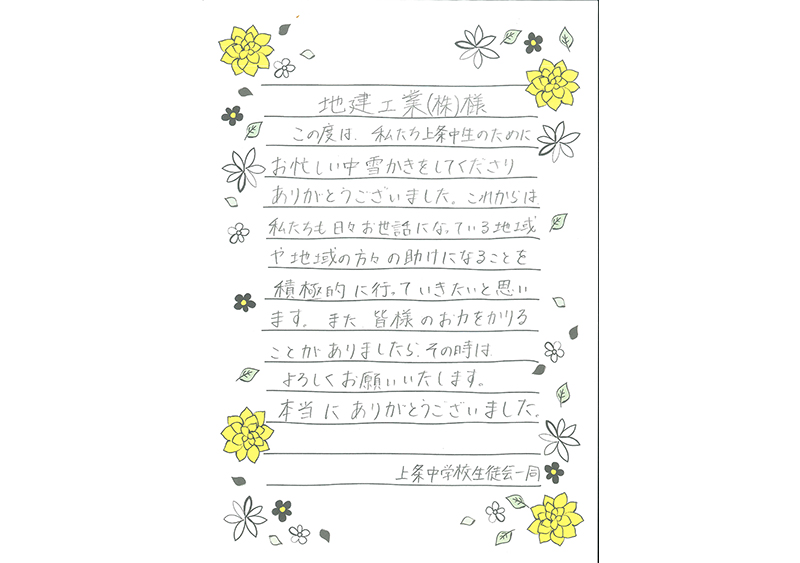 地建工業(株)様
この度は、私たち上条中生のために
お忙しい中雪かきをしてくださり
ありがとうございました。これからは
私たちも日々お世話になっている地域
や地域の方々の助けになることを
積極的に行っていきたいと思い
ます。また皆様のお力をかりる
ことがありましたら、その時は
よろしくお願いいたします。
本当にありがとうございました。
上条中学校生徒会一同